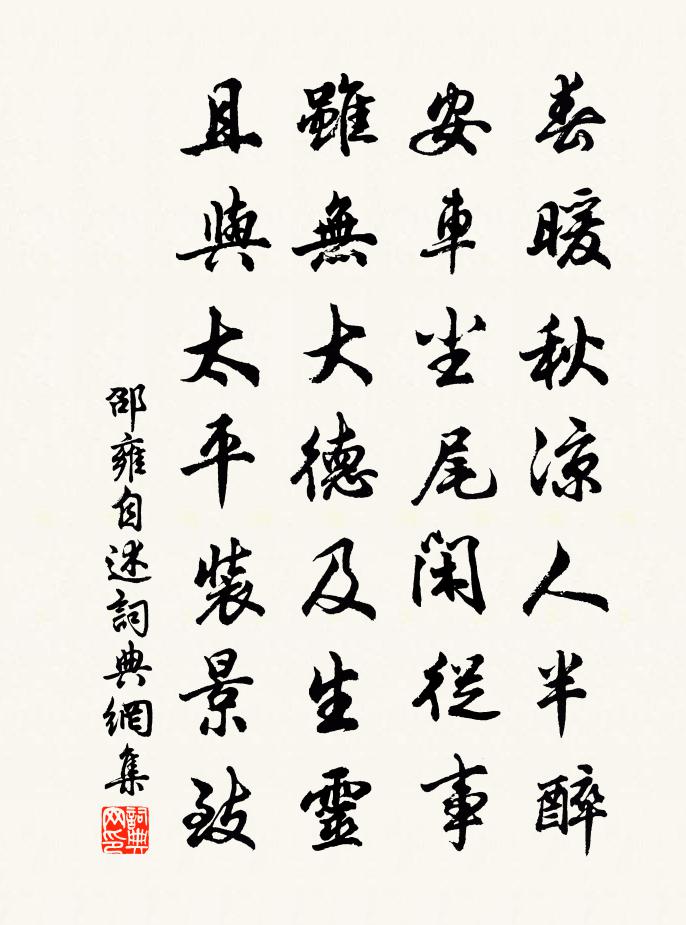 春暖秋涼人半醉
安車塵尾閑從事
雖無大德及生靈
且與太平裝景致
邵雍自述詞典網集
詞典网印